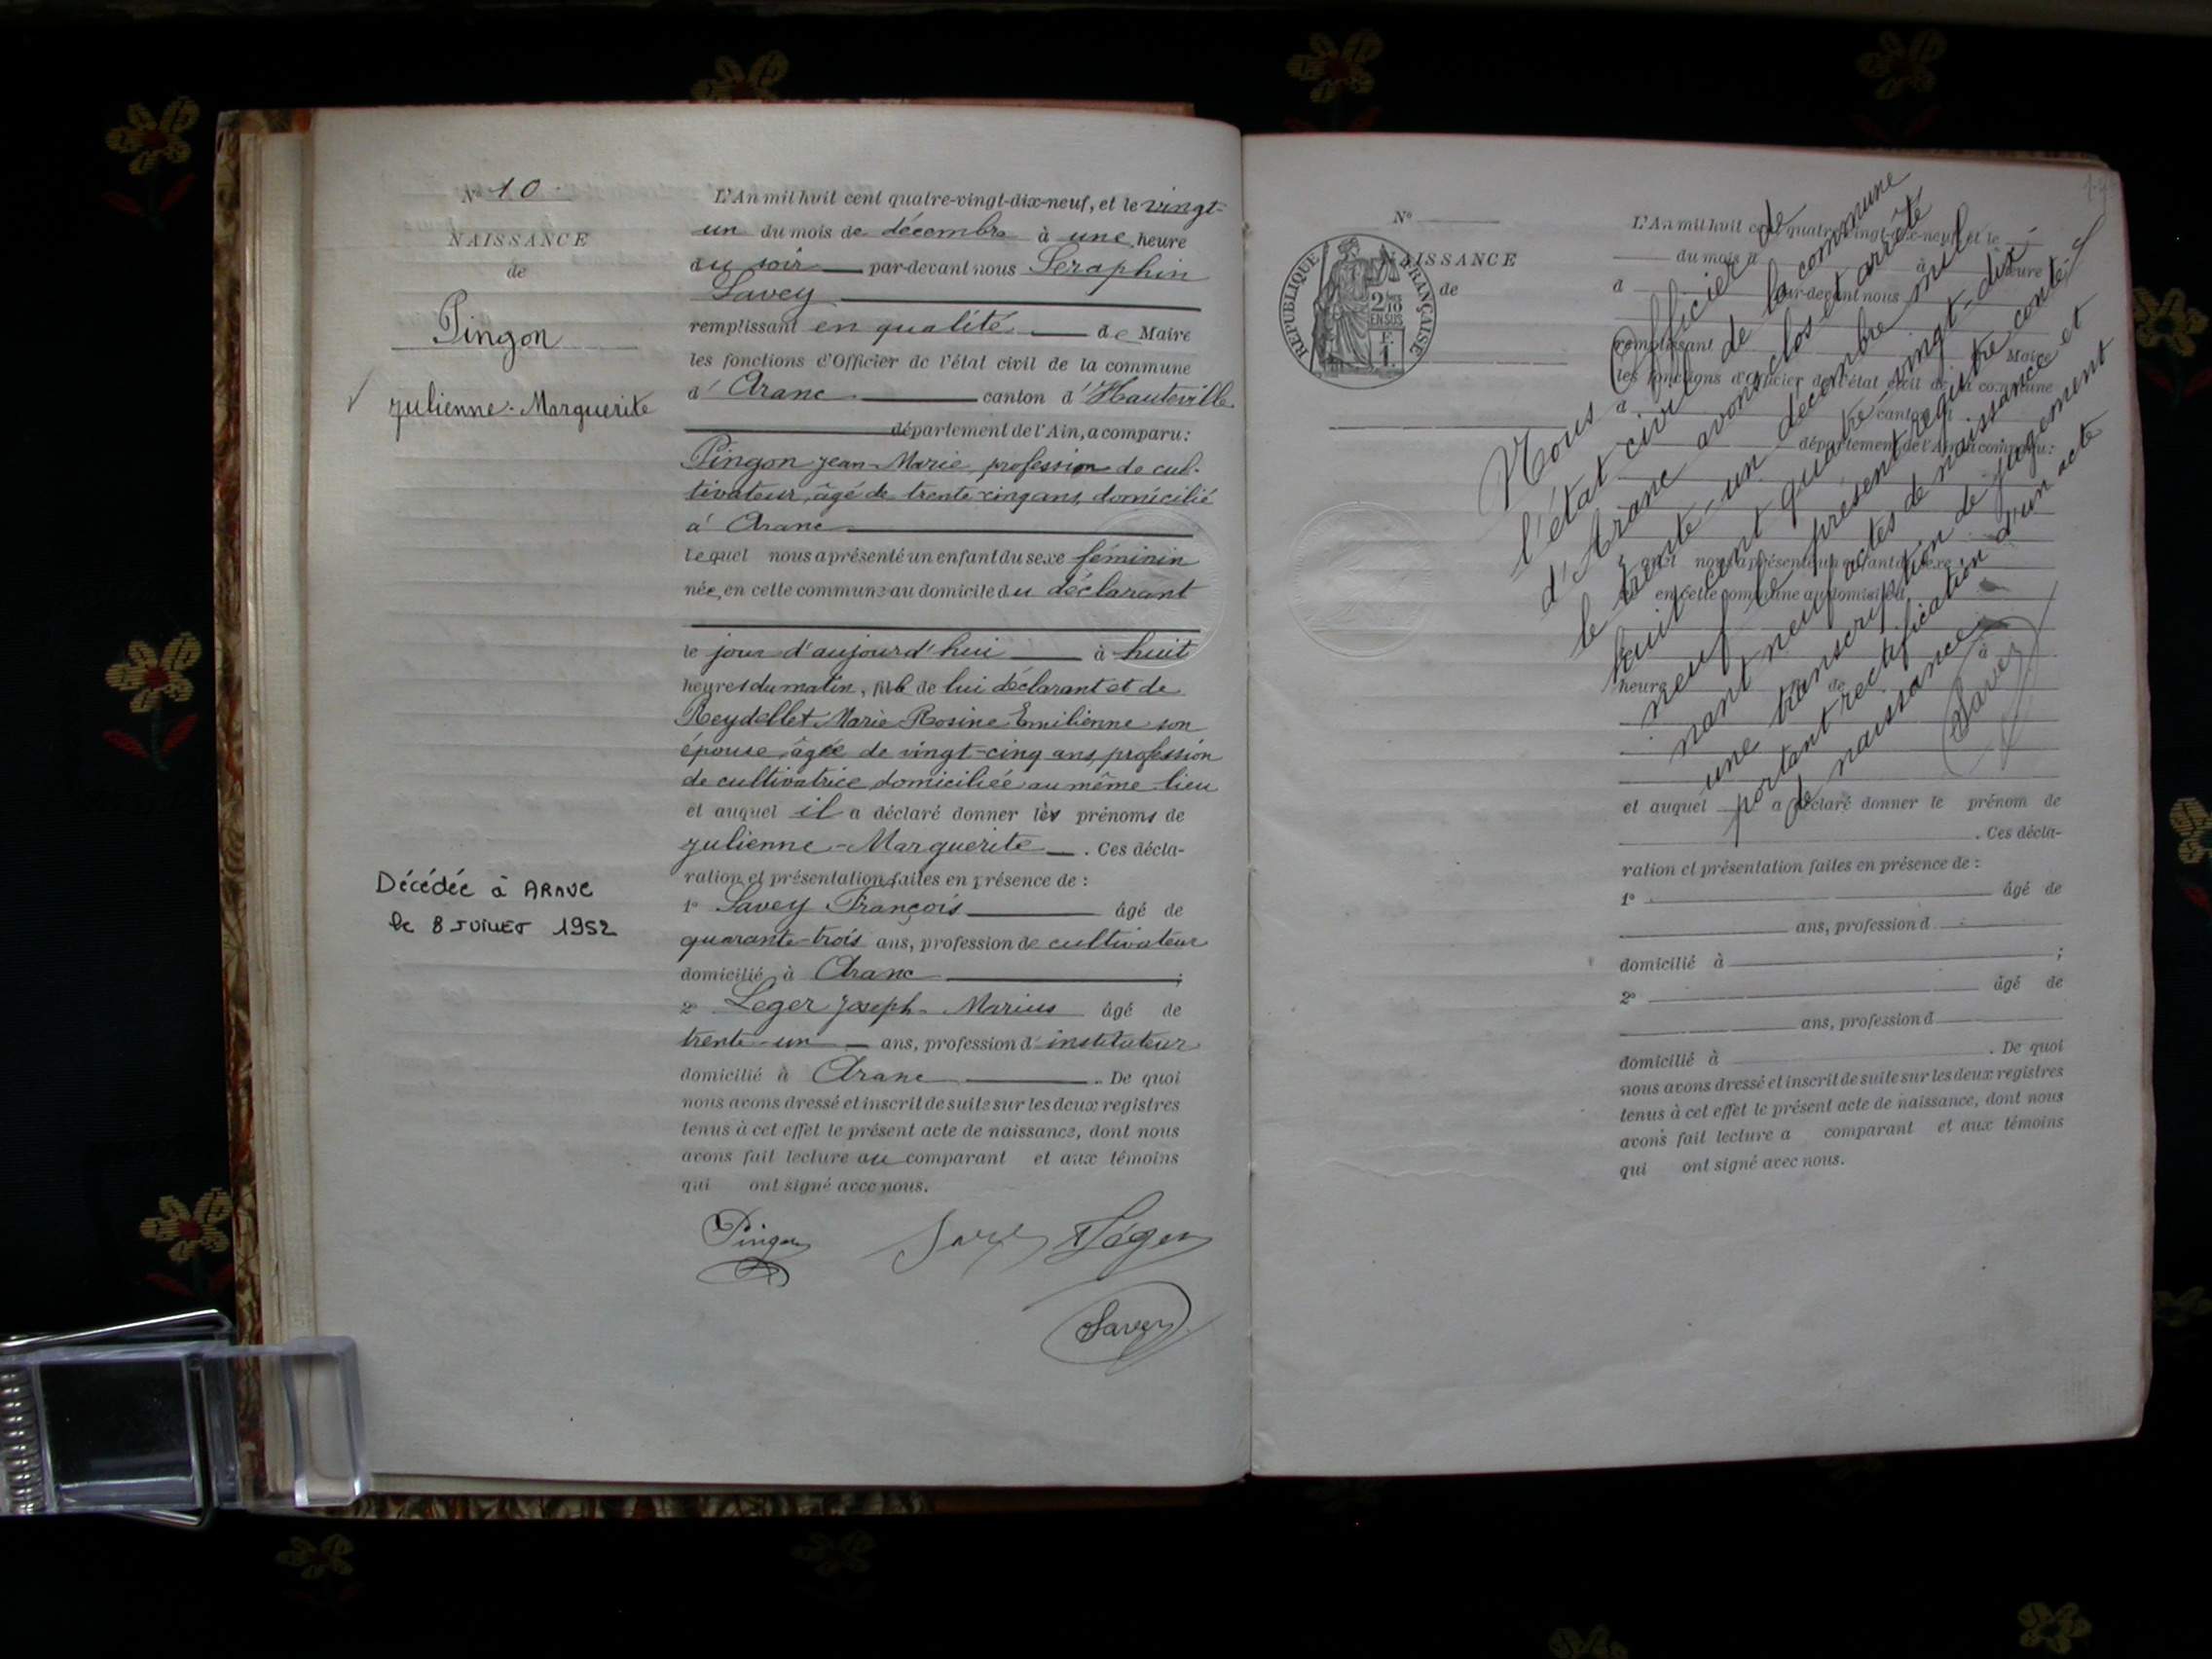 N° 10
NAISSANCE
de
Pingon
Julienne-Marguerite
Décédée à ARANC
le 8 JUILLET 1952
L'An mil huit cent quatre-vingt-dix-neuf, et le vingt-
un du mois de décembre à une heure
du soir par-devant nous Séraphin
Savey
remplissant en qualité de Maire
les fonctions d'Officier de l'état civil de la commune
d' Aranc canton d'Hauteville
département de l'Ain, a comparu :
Pingon Jean-Marie, profession de cul-
tivateur, âgé de trente cinq ans, domicilié
à Aranc
lequel nous a présenté un enfant du sexe féminin
née, en cette commune au domicile du déclarant
le jour d'aujourd'hui à huit
heures du matin, fille de lui déclarant et de
Reydellet Marie Rosine Emilienne son
épouse, âgée de vingt-cinq ans, profession
de cultivatrice domiciliée au même lieu
et auquel il a déclaré donner les prénoms de
Julienne-Marguerite . Ces décla-
ration et présentation faites en présence de :
1° Savey François âgé de
quarante-trois ans, profession de cultivateur
domicilié à Aranc ;
2° Leger Joseph-Marius âgé de
trente-un ans, profession d'instituteur
domicilié à Aranc . De quoi
nous avons dressé et inscrit de suite sur les deux registres
tenus à cet effet le présent acte de naissance, dont nous
avons fait lecture au comparant et aux témoins
qui ont signé avec nous.
Pingon Savey Léger
Savey
N°
NAISSANCE
de
RÉPUBLIQUE FRANÇAISE
2/10
EN SUS
F.
1.
L'An mil huit cent quatre-vingt-dix-neuf, et le
du mois d à heure
d par-devant nous
remplissant Maire
les fonctions d'Officier de l'état civil de la commune
d canton
département de l'Ain, a comparu :
quel nous a présenté un enfant du sexe
en cette commune au domicile d
à
heure de
et auquel a déclaré donner le prénom de
. Ces décla-
ration et présentation faites en présence de :
1° âgé de
ans, profession d
domicilié à ;
2° âgé de
ans, profession d
domicilié à . De quoi
nous avons dressé et inscrit de suite sur les deux registres
tenus à cet effet le présent acte de naissance, dont nous
avons fait lecture a comparant et aux témoins
qui ont signé avec nous.
Nous Officier de
l'état civil de la commune
d'Aranc avons clos et arrêté
le trente-un décembre mil
huit cent quatre-vingt-dix-
neuf le présent registre conte-
nant neuf actes de naissance et
une transcription de jugement
portant rectification d'un acte
de naissance
Savey